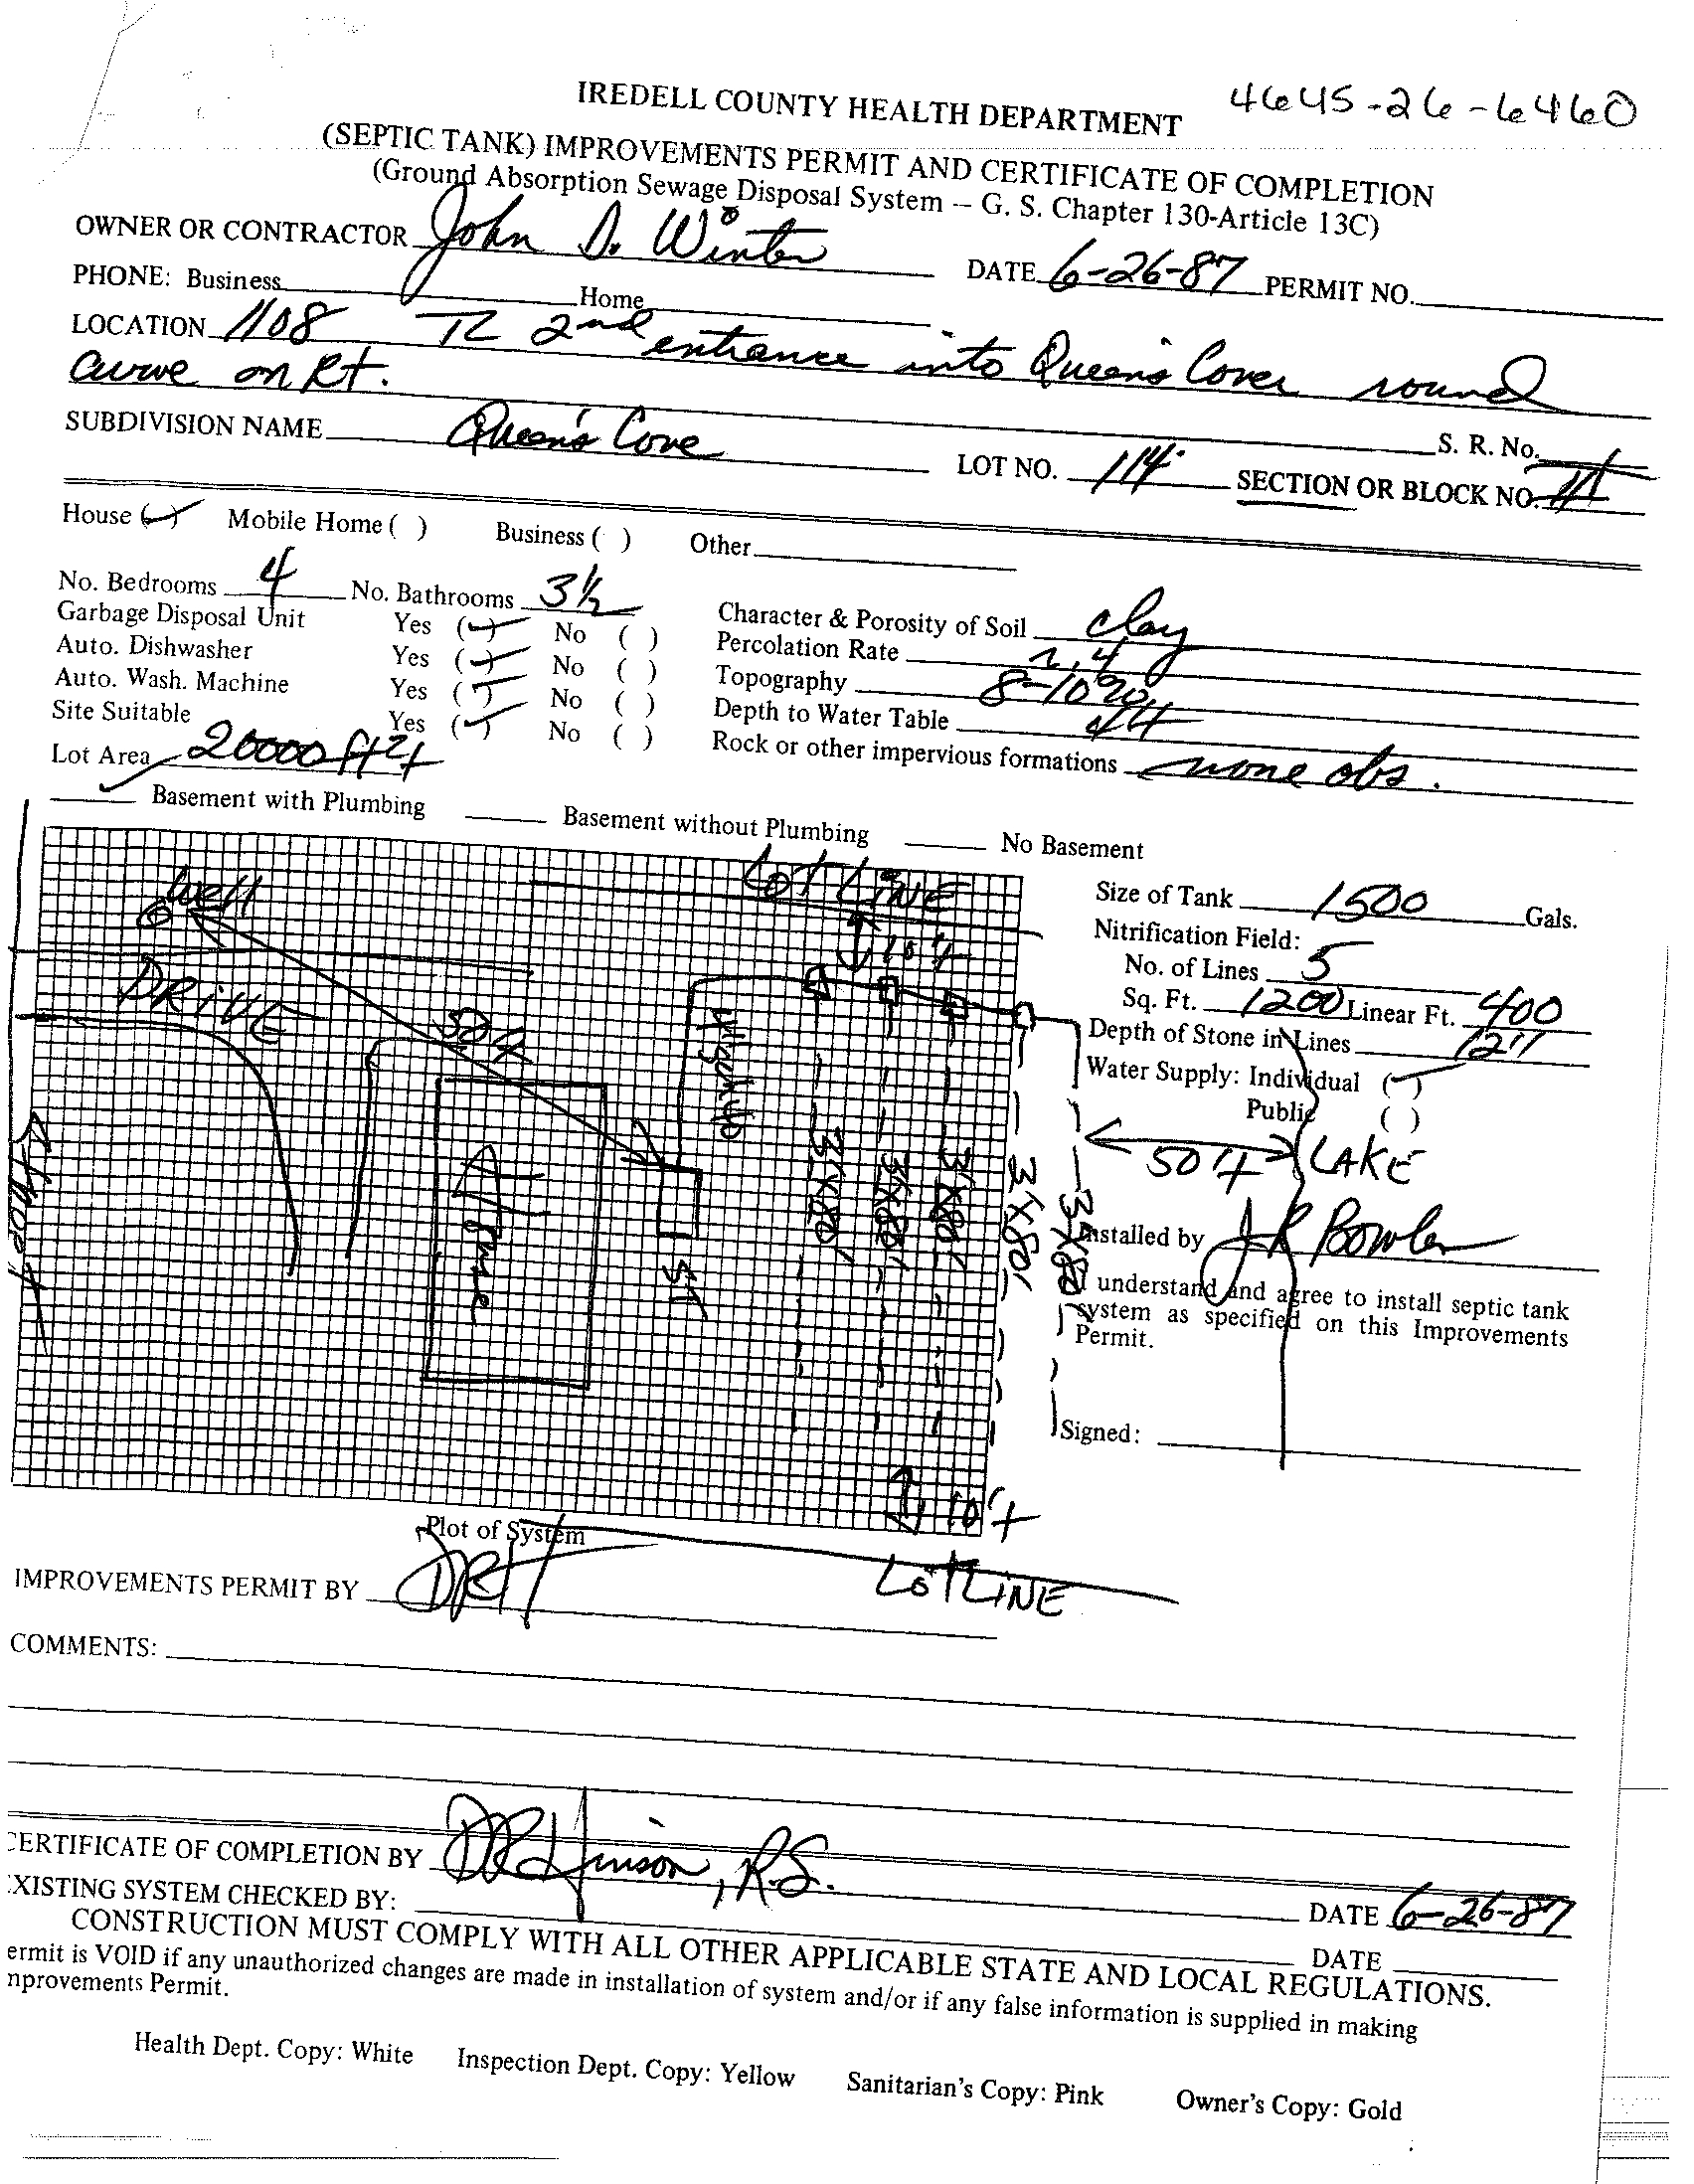 4645-26-6460
IREDELL COUNTY HEALTH DEPARTMENT
(SEPTIC TANK) IMPROVEMENTS PERMIT AND CERTIFICATE OF COMPLETION
(Ground Absorption Sewage Disposal System – G. S. Chapter 130-Article 13C)
OWNER OR CONTRACTOR John D. Winter DATE 6-26-87 PERMIT NO.
PHONE: Business Home
LOCATION 1108 TL 2nd entrance into Queens Cover round
curve on Rt.
SUBDIVISION NAME Queen's Cove S. R. No.
LOT NO. 114 SECTION OR BLOCK NO.
House (✓) Mobile Home ( ) Business ( ) Other
No. Bedrooms 4 No. Bathrooms 3½
Garbage Disposal Unit Yes (✓) No ( )
Auto. Dishwasher Yes (✓) No ( )
Auto. Wash. Machine Yes (✓) No ( )
Site Suitable Yes (✓) No ( )
Lot Area 20000 ft2±
Character & Porosity of Soil clay
Percolation Rate
Topography 8-10%
Depth to Water Table
Rock or other impervious formations none obs.
✓ Basement with Plumbing Basement without Plumbing No Basement
LOT LINE
Well
10'±
DRIVE
House
ST
3'X80'
3'X80'
3'X80'
3'X80'
3'X80'
10'±
LOT LINE
Size of Tank 1500 Gals.
Nitrification Field:
No. of Lines 5
Sq. Ft. 1200 Linear Ft. 400
Depth of Stone in Lines 12"
Water Supply: Individual (✓)
Public ( )
50'± LAKE
Installed by J R Bowler
I understand and agree to install septic tank
system as specified on this Improvements
Permit.
Signed:
Plot of System
IMPROVEMENTS PERMIT BY DRH
COMMENTS:
CERTIFICATE OF COMPLETION BY DR Hinson, R.S. DATE 6-26-87
EXISTING SYSTEM CHECKED BY: DATE
CONSTRUCTION MUST COMPLY WITH ALL OTHER APPLICABLE STATE AND LOCAL REGULATIONS.
ermit is VOID if any unauthorized changes are made in installation of system and/or if any false information is supplied in making
nprovements Permit.
Health Dept. Copy: White Inspection Dept. Copy: Yellow Sanitarian's Copy: Pink Owner's Copy: Gold